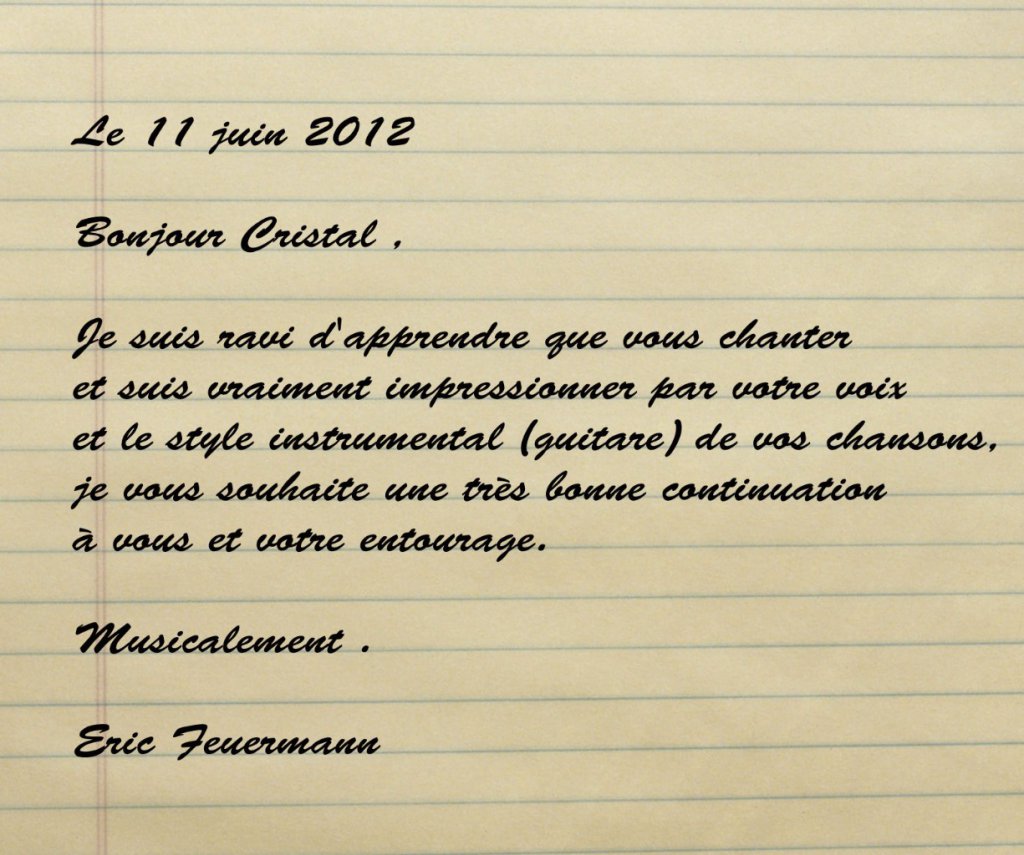 Le 11 juin 2012
Bonjour Cristal ,
Je suis ravi d'apprendre que vous chanter
et suis vraiment impressionner par votre voix
et le style instrumental (guitare) de vos chansons,
je vous souhaite une très bonne continuation
à vous et votre entourage.
Musicalement .
Eric Feuermann